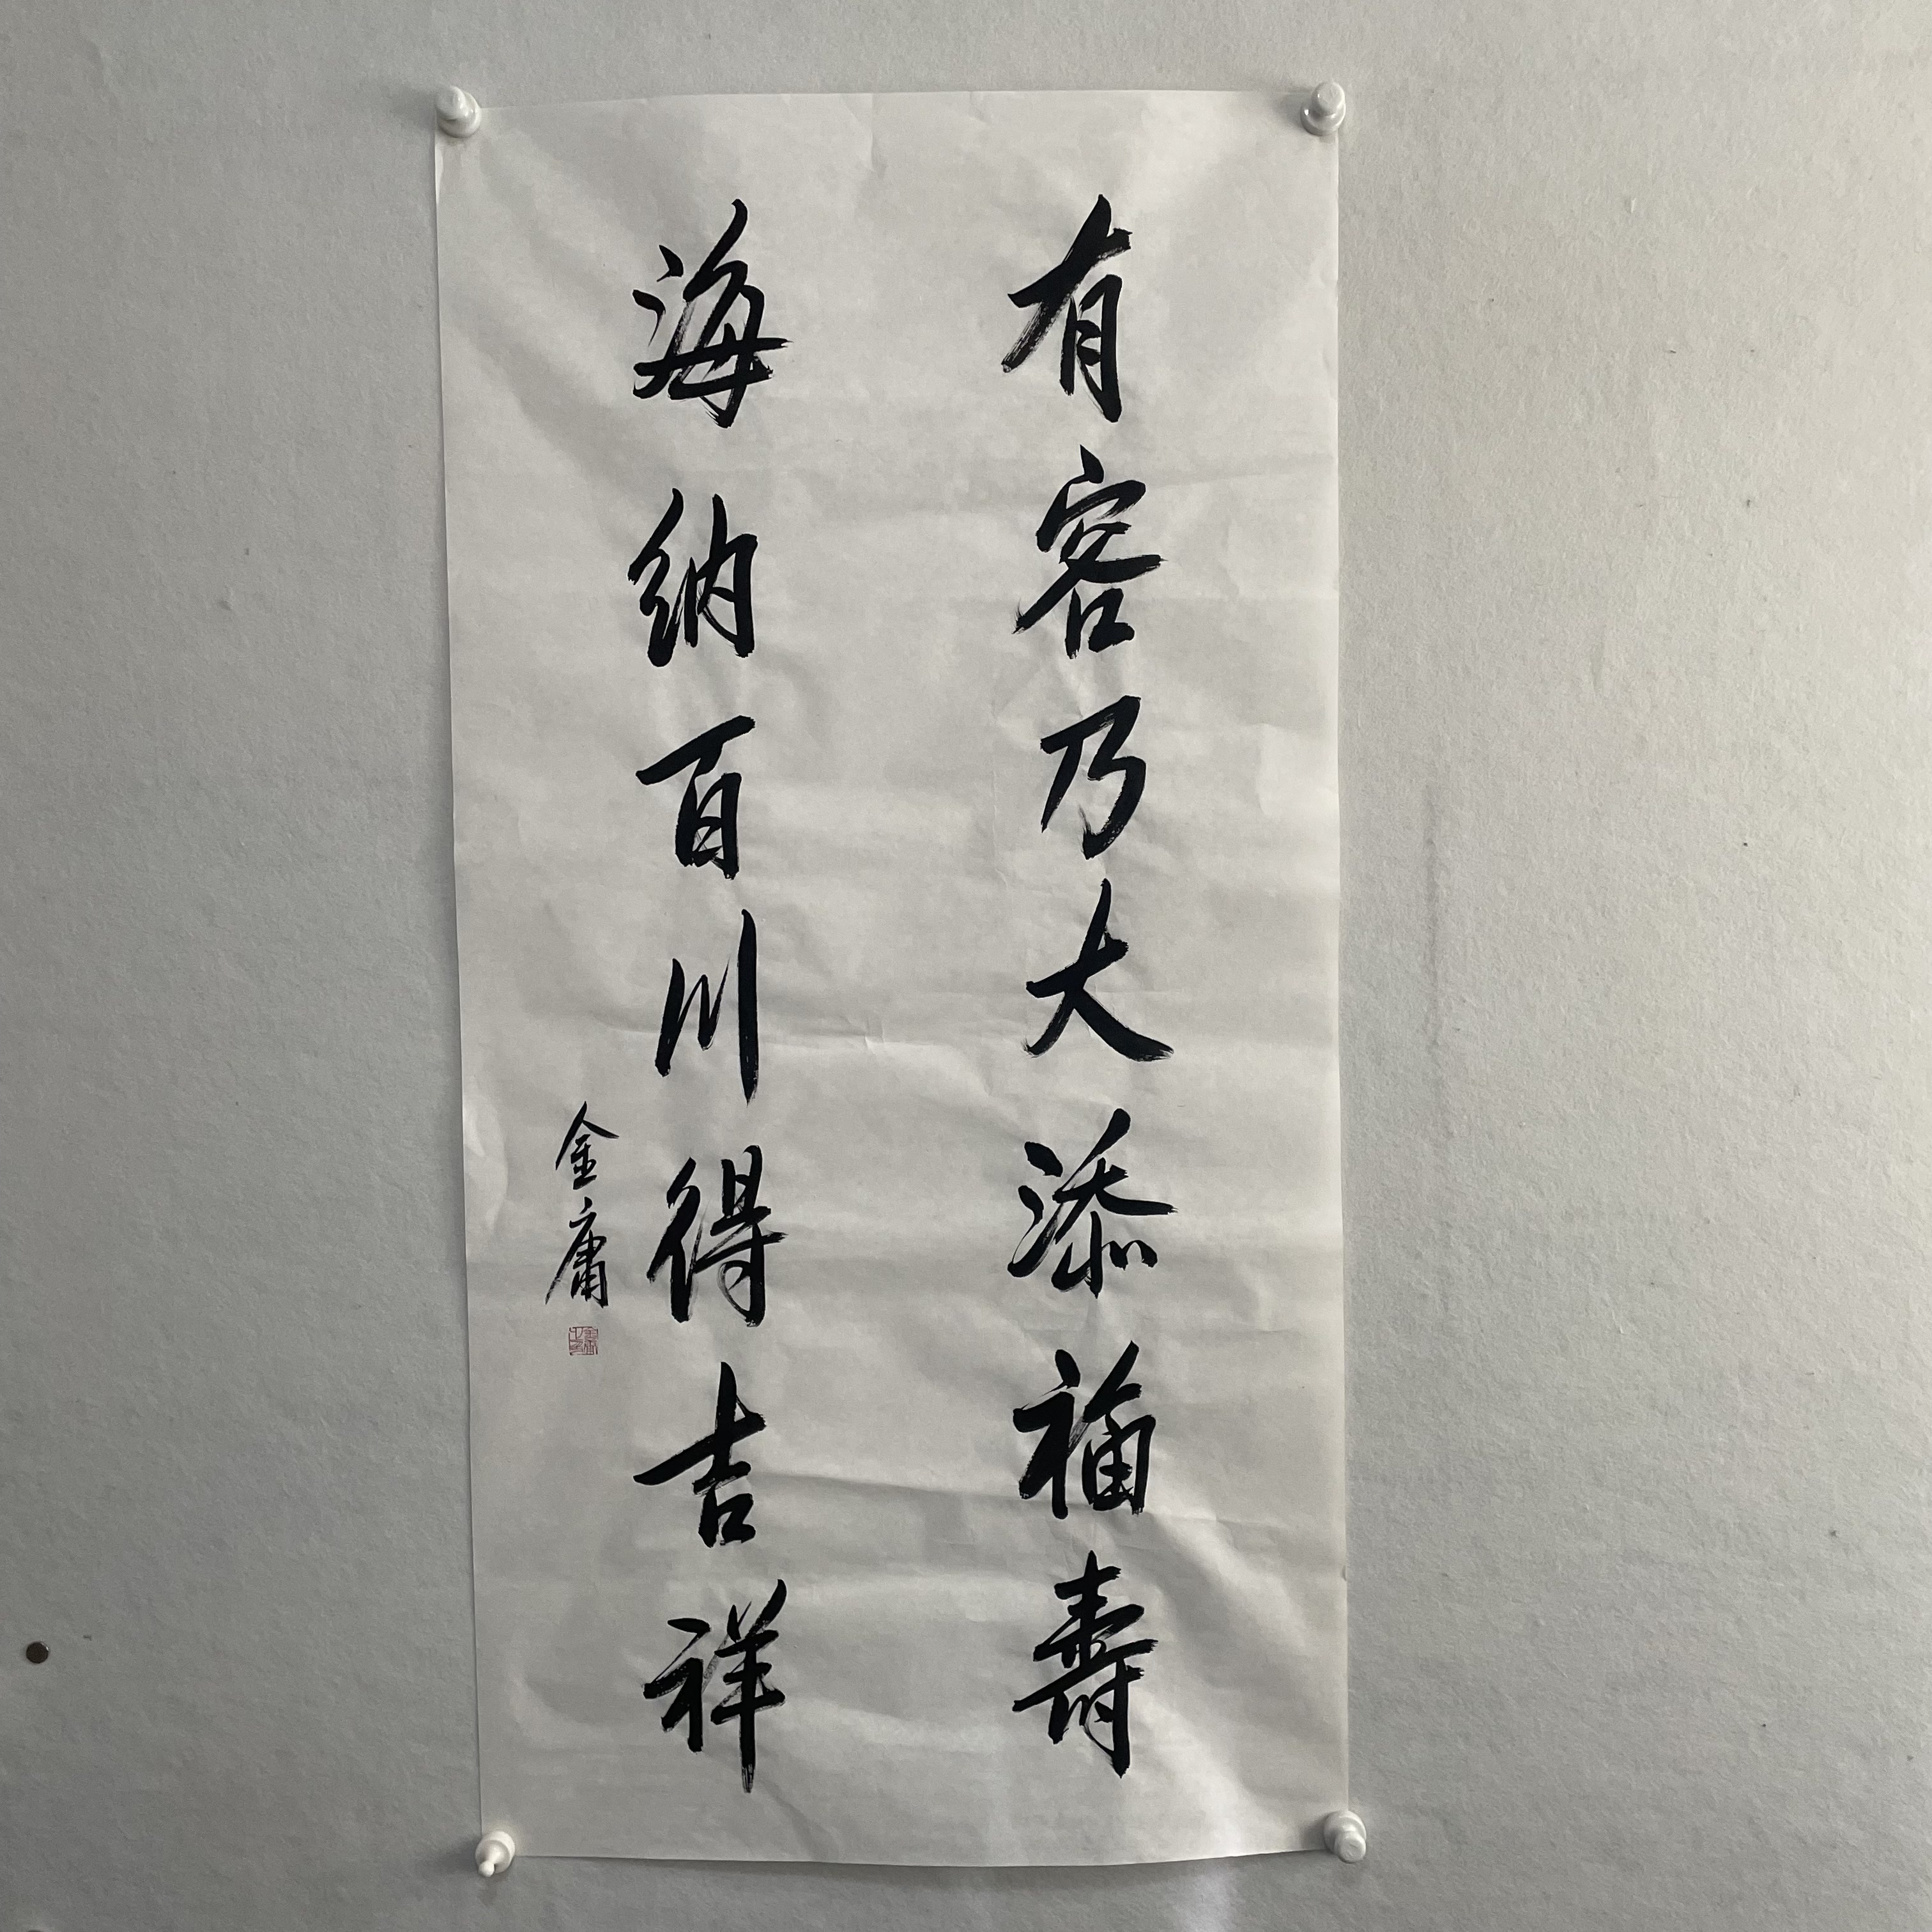 有容乃大添福寿
海纳百川得吉祥
金庸